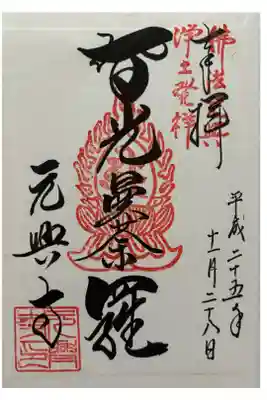 佛法元興
浄土發祥
奉拝
平成二十五年
十一月二十八日
智光曼荼羅
元興寺